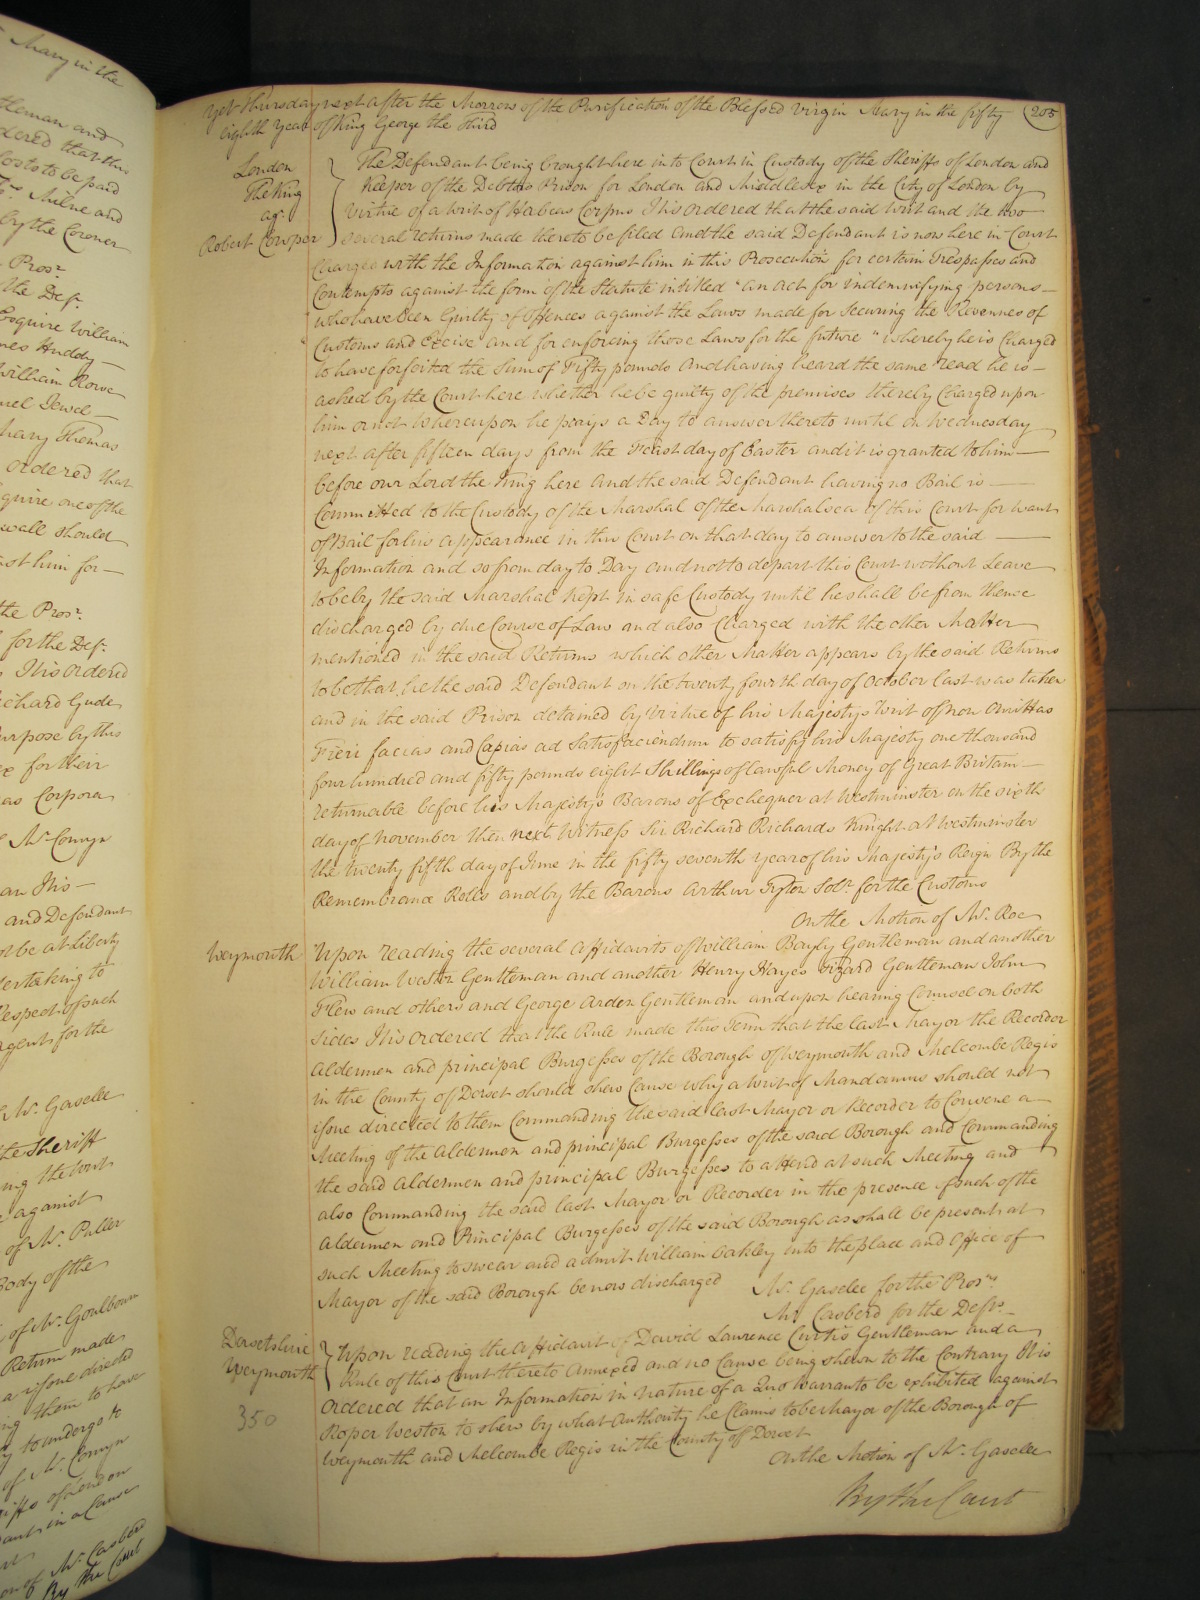 Mary in the
yet Thursday next after the Morrow of the Purification of the Blessed Virgin Mary in the fifty 205
eighth Year of King George the Third
London
The King
agt.
Robert Cowper
The Defendant being brought here in to Court in Custody of the Sheriffs of London and
Keeper of the Debtors Prison for London and Middlesex in the City of London by
Virtue of a Writ of Habeas Corpus It is ordered that the said Writ and the two
several returns made thereto be filed And the said Defendant is now here in Court
Charged with the Information against him in this Prosecution for certain Trespasses and
Contempts against the form of the Statute intitled "an act for indemnifying persons
"who have been Guilty of Offences against the Laws made for Securing the Revenues of
"Customs and Excise and for enforcing those Laws for the future" whereby he is Charged
to have forfeited the Sum of Fifty pounds And having heard the same read he is
asked by the Court here whether he be guilty of the premises thereby Charged upon
him or not Whereupon he prays a Day to answer thereto until on Wednesday
next after fifteen days from the Feast day of Easter and it is granted to him
before our Lord the King here And the said Defendant having no Bail is
Committed to the Custody of the Marshal of the Marshalsea of this Court for want
of Bail for his appearance in this Court on that day to answer to the said
Information and so from day to Day and not to depart this Court without Leave
to be by the said Marshal kept in safe Custody until he shall be from thence
discharged by due Course of Law and also Charged with the other Matter
mentioned in the said Returns which other Matter appears by the said Returns
to be that he the said Defendant on the twenty fourth day of October last was taken
and in the said Prison detained by virtue of his Majestys Writ of Non Omittas
Fieri facias and Capias ad Satisfaciendum to satisfy his Majesty one thousand
four hundred and fifty pounds eight Shillings of lawful Money of Great Britain
returnable before his Majesty's Barons of Exchequer at Westminster on the sixth
day of November then next Witness Sir Richard Richards Knight at Westminster
the twenty fifth day of June in the fifty seventh year of his Majesty's Reign By the
Remembrance Rolls and by the Barons Arthur Tyton Solr. for the Customs
On the Motion of Mr. Roe
Weymouth
Upon reading the several Affidavits of William Bayly Gentleman and another
William Weston Gentleman and another Henry Hayes Vizard Gentleman John
Flew and others and George Arden Gentleman and upon hearing Counsel on both
sides It is ordered that the Rule made this Term that the last Mayor the Recorder
Aldermen and principal Burgesses of the Borough of Weymouth and Melcombe Regis
in the County of Dorset should shew Cause why a Writ of Mandamus should not
issue directed to them Commanding the said last Mayor or Recorder to Convene a
Meeting of the Aldermen and principal Burgesses of the said Borough and Commanding
the said Aldermen and principal Burgesses to attend at such Meeting and
also Commanding the said last Mayor or Recorder in the presence of such of the
Aldermen and Principal Burgesses of the said Borough as shall be present at
such Meeting to swear and admit William Oakley into the place and Office of
Mayor of the said Borough be now discharged Mr. Gaselee for the Prosrs.
Mr Casberd for the Defts.
Dorsetshire
Weymouth
Upon reading the Affidavit of David Laurence Curtis Gentleman and a
Rule of this Court thereto Annexed and no Cause being shewn to the Contrary It is
Ordered that an Information in nature of a Quo Warranto be exhibited against
Roper Weston to shew by what Authority he Claims to be Mayor of the Borough of
Weymouth and Melcombe Regis in the County of Dorset
350
On the Motion of Mr. Gaselee
By the Court